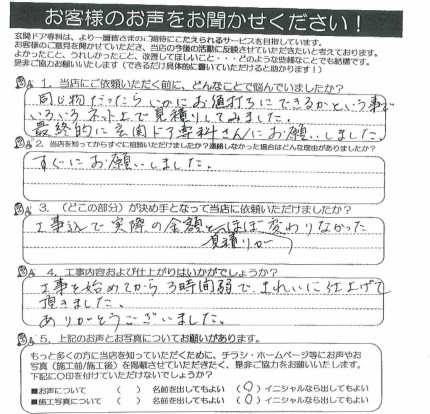 お客様のお声をお聞かせください!
玄関ドア専科は、より一層皆さまのご期待にこたえられるサービスを目指しています。
お客様のご意見を聞かせていただき、当店の今後の活動に反映させていただきたいと考えております。
よかったこと、うれしかったこと、改善してほしいこと・・・どのような些細なことでも結構です。
是非ご協力お願いいたします(できるだけ具体的に書いていただけると助かります!)
1. 当店にご依頼いただく前に、どんなことで悩んでいましたか?
同じ物だったらいかにお値打ちにできるかという事で
いろいろネット上で見積りしてみました。
最終的に玄関ドア専科さんにお願いしました。
2. 当店を知ってからすぐに相談いただけましたか?連絡しなかった場合はどんな理由がありましたか?
すぐにお願いしました。
3. (どこの部分)が決め手となって当店に依頼いただけましたか?
工事込で実際の金額とほぼ変わりなかった
見積りが
4. 工事内容および仕上がりはいかがでしょうか?
工事を始めてから3時間弱で、きれいに仕上げて
頂きました。
ありがとうございました。
5. 上記のお声とお写真についてお願いがあります。
もっと多くの方に当店を知っていただくために、チラシ・ホームページ等にお声やお
写真(施工前/施工後)を掲載させていただきたく、是非ご協力をお願いいたします。
下記に〇印を付けていただけないでしょうか?
■お声について ( ) 名前を出してもよい (〇) イニシャルなら出してもよい
■施工写真について ( ) 名前を出してもよい (〇) イニシャルなら出してもよい